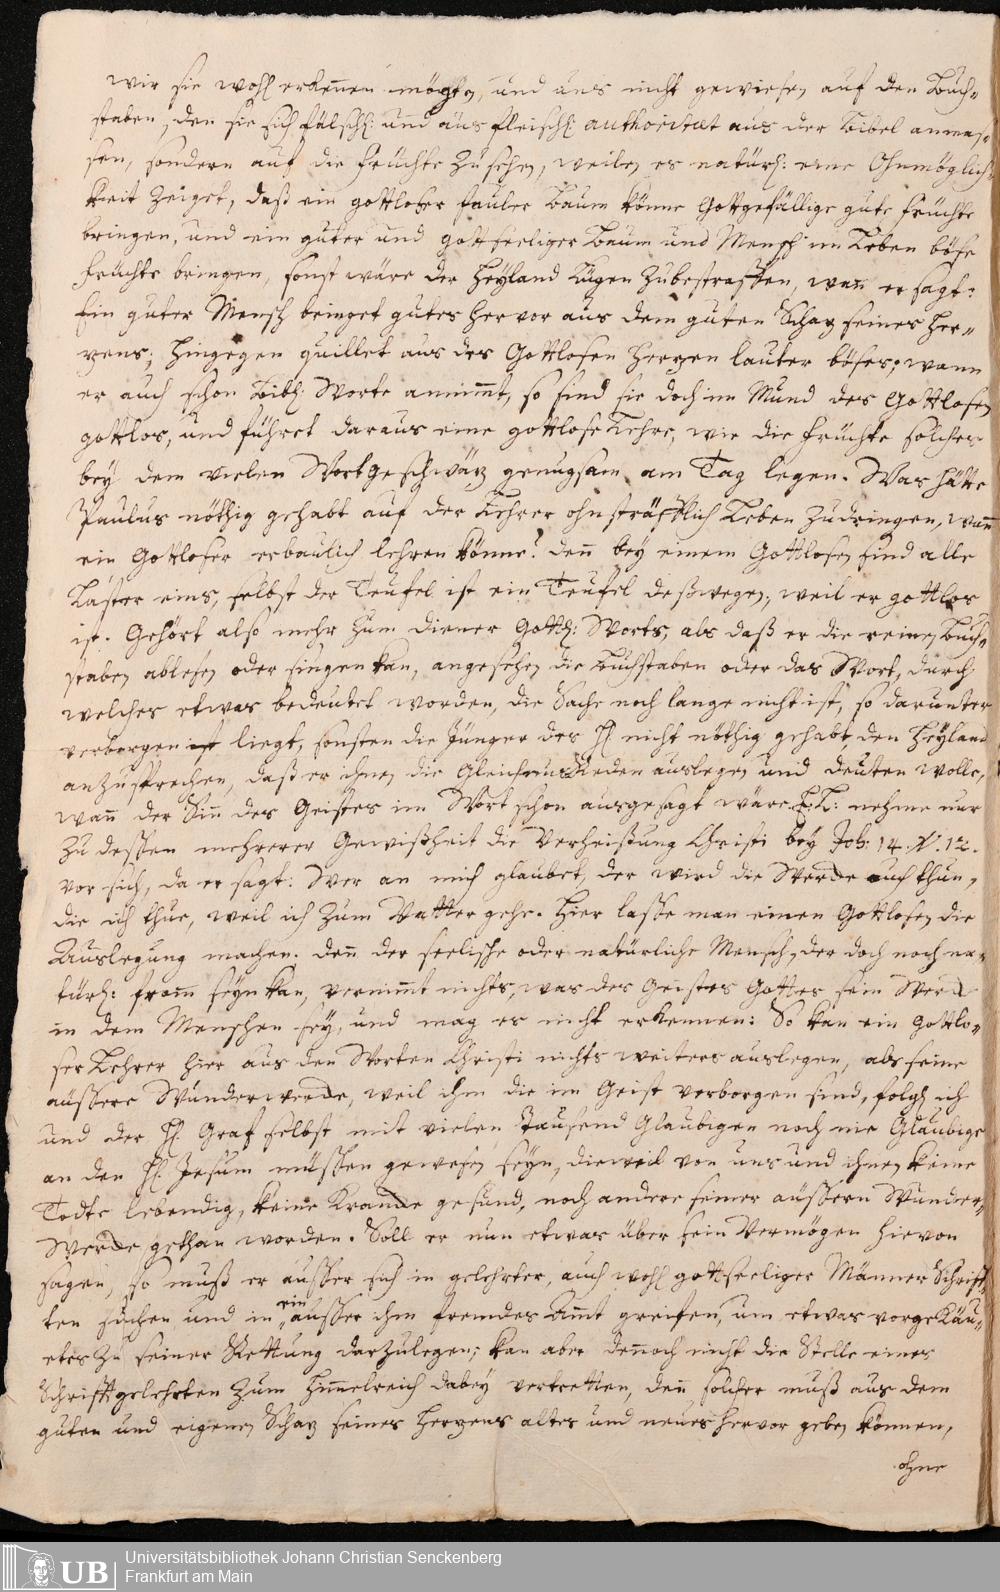 wir sie wohl erkennen mögten, und uns nicht gewiesen auf den Buch-
staben, den sie sich fälschl: und aus fleischl: authoritæt aus der Bibel anmas-
sen, sondern auf die Früchte zu sehen, weilen es natürl: eine Ohnmöglich-
keit zeiget, daß ein gottloser fauler Baum könne Gottgefällige gute Früchte
bringen, und ein guter und gottseeliger Baum und Mensch im Leben böse
Früchte bringen, sonst wäre der Heyland Lügen zubestraffen, wan er sagt:
Ein guter Mensch bringet gutes hervor aus dem guten Schaz seines Her-
zens; hingegen quillet aus des Gottlosen Herzen lauter böses; wann
er auch schon Bibl: Worte annimt, so sind sie doch im Mund des Gottlosen
gottlos, und führet daraus eine gottlose Lehre, wie die Früchte solches
bey dem vielen Wortgeschwäz genugsam am Tag legen. Was hätte
Paulus nöthig gehabt auf der Lehrer ohnsträfflich Leben zudringen, wan
ein Gottloser erbaulich lehren könne? den bey einem Gottlosen sind alle
Laster eins, selbst der Teufel ist ein Teufel deßwegen, weil er gottlos
ist. Gehört also mehr zum diener Göttl: Worts, als daß er die reinen Buch-
staben ablesen oder singen kan, angesehen die Buchstaben oder das Wort, durch
welches etwas bedeutet worden, die Sache noch lange nicht ist, so darunter
verborgen ist liegt, sonsten die Jünger des H nicht nöthig gehabt, den Heyland
anzusprechen, daß er ihnen die Gleichnus Reden auslegen und deuten wolle,
wan der Sin des Geistes im Wort schon ausgesagt wäre. E: L: nehme nur
zu dessen mehrerer Gewißheit die Verheißung Christi bey Joh. 14. V. 12.
vor sich, da er sagt: Wer an mich glaubet, der wird die Wercke auch thun,
die ich thue, weil ich zum Vatter gehe. Hier lasse man einen Gottlosen die
Auslegung machen. den der seelische oder natürliche Mensch, der doch noch na-
türl: from seyn kan, vernimt nichts, was des Geistes Gottes sein Werck
in dem Menschen sey, und mag es nicht erkennen: So kan ein Gottlo-
ser Lehrer hier aus den Worten Christi nichts weiters auslegen, als seine
äussere Wunderwercke, weil ihm die im Geist verborgen sind, folgl ich
und der H. Graf selbst mit vielen Tausend Glaubigen noch nie Glaubige
an den H. Jesum müssen gewesen seyn, dieweil von uns und ihnen keine
Todte lebendig, keine Krancke gesund, noch andere seiner äussern Wunder-
Wercke gethan worden. Soll er nun etwas über sein Vermögen hievon
sagen, so muß er ausser sich in gelehrter, auch wohl gottseeliger Männer Schriff-
ten suchen und in ein ausser ihm fremdes Amt greifen, um etwas vorgekäu-
etes zu seiner Rettung darzulegen; kan aber dennoch nicht die Stelle eines
Schrifftgelehrten zum Himmelreich dabey vertretten, den solcher muß aus dem
guten und eigenen Schaz seines Herzens altes und neues hervor geben können,
ohne
UB Universitätsbibliothek Johann Christian Senckenberg
Frankfurt am Main